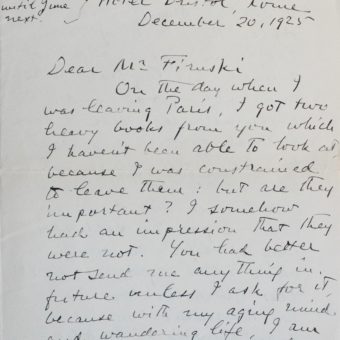 until June } Hotel Bristol, Rome
next.
December 20, 1925
Dear Mr Firuski
On the day when I
was leaving Paris, I got two
heavy books from you which
I haven't been able to look at
because I was constrained
to leave them: but are they
important? I somehow
had an impression that they
were not. You had better
not send me anything in
future unless I ask for it,
because with my aging mind
and wandering life, I am